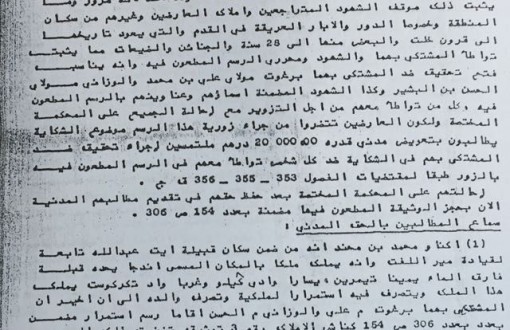 يثبت ذلك موقف الشهود المتراجعين واملاك العارضين وغيرهم من سكان
المنطقة وخصوصا الدور والابار العريقة في القدم والتي يعود تاريخها
الى قرون خلت والبعض منها الى 28 سنة والجنائن والضيعات مما يثبت
تواطؤ المشتكى بهما والشهود ومحرري الرسم المطعون فيه وانه يناسب
فتح تحقيق ضد المشتكى بهما برغوت مولاي علي بن محمد والوزاني مولاي
الحسن بن البشير وكذا الشهود المضمنة اسماؤهم وعناوينهم بالرسم المطعون
فيه وكل من تواطأ معهم من اجل التزوير مع احالة الجميع على المحكمة
المختصة ولكون العارضين تضرروا من جراء زورية هذا الرسم موضوع الشكاية
يطالبون بتعويض مدني قدره 20 000,00 درهم ملتمسين اجراء تحقيق ضد
المشتكى بهم في الشكاية ضد كل شخص تواطأ معهم في الرسم المطعون فيه
بالزور طبقا لمقتضيات الفصول 353 - 355 - 356 ق ج .
احالتهم على المحكمة المختصة بعد حفظ حقهم في تقديم مطالبهم المدنية
الان بعجز الوثيقة المطعون فيها مضمنة بعدد 154 ص 306 .
سماع المطالبين بالحق المدني :
(1) اكنا و محمد بن محند انه من ضمن سكان قبيلة ايت عبدالله تابعة
لقيادة مير اللفت وانه يملك ملكا بالمكان المسمى اندجا يحده قبلة
فارق الماء يمينا تيمرين يسارا وادي كيلو وغربا واد تكركوست يملك
هذا الملك ويتصرف فيه استمرارا لملكية وتصرف والده الى ان اخبر ان
المشتكى بهما برغوت م علي والوزاني م الحسن اقاما رسم استمرار مضمن
بعدد 154 كناش الاملاك رقم 3